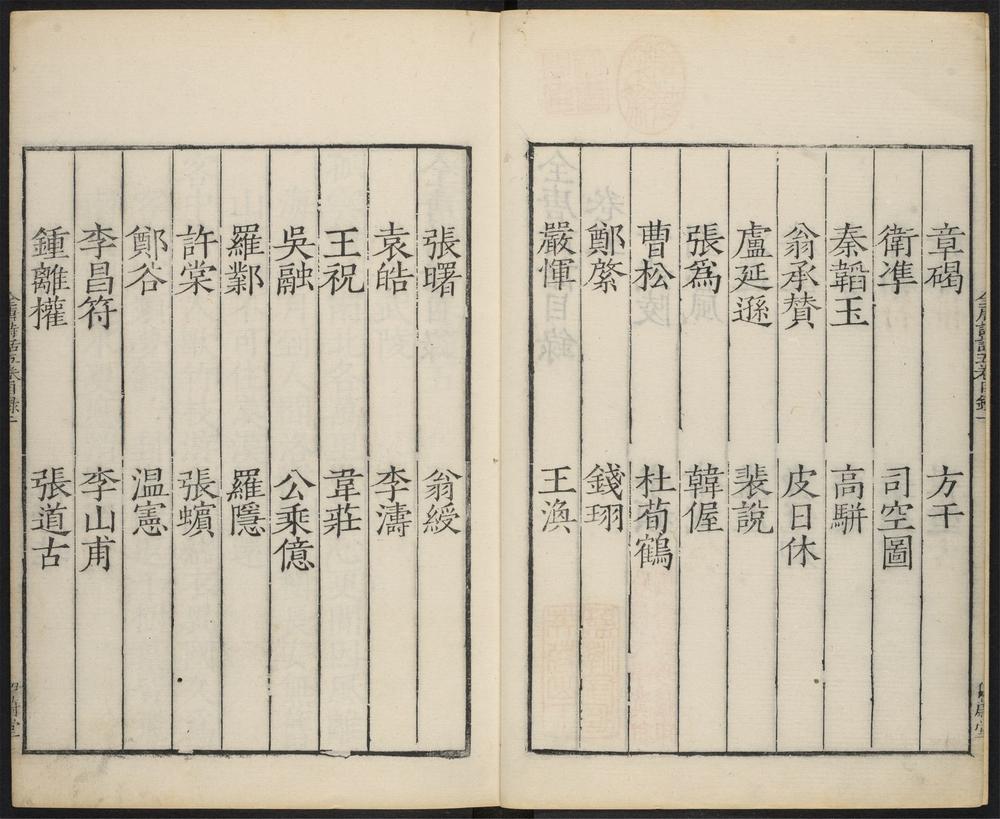 章碣 方干
衛準 司空圖
秦韜玉 高駢
翁承贊 皮日休
盧延遜 裴說
張爲 韓偓
曹松 杜荀鶴
鄭綮 錢珝
嚴惲 王渙
張曙 翁綬
袁皓 李濤
王祝 韋莊
吳融 公乘億
羅鄴 羅隱
許棠 張蠙
鄭谷 温憲
李昌符 李山甫
鍾離權 張道古